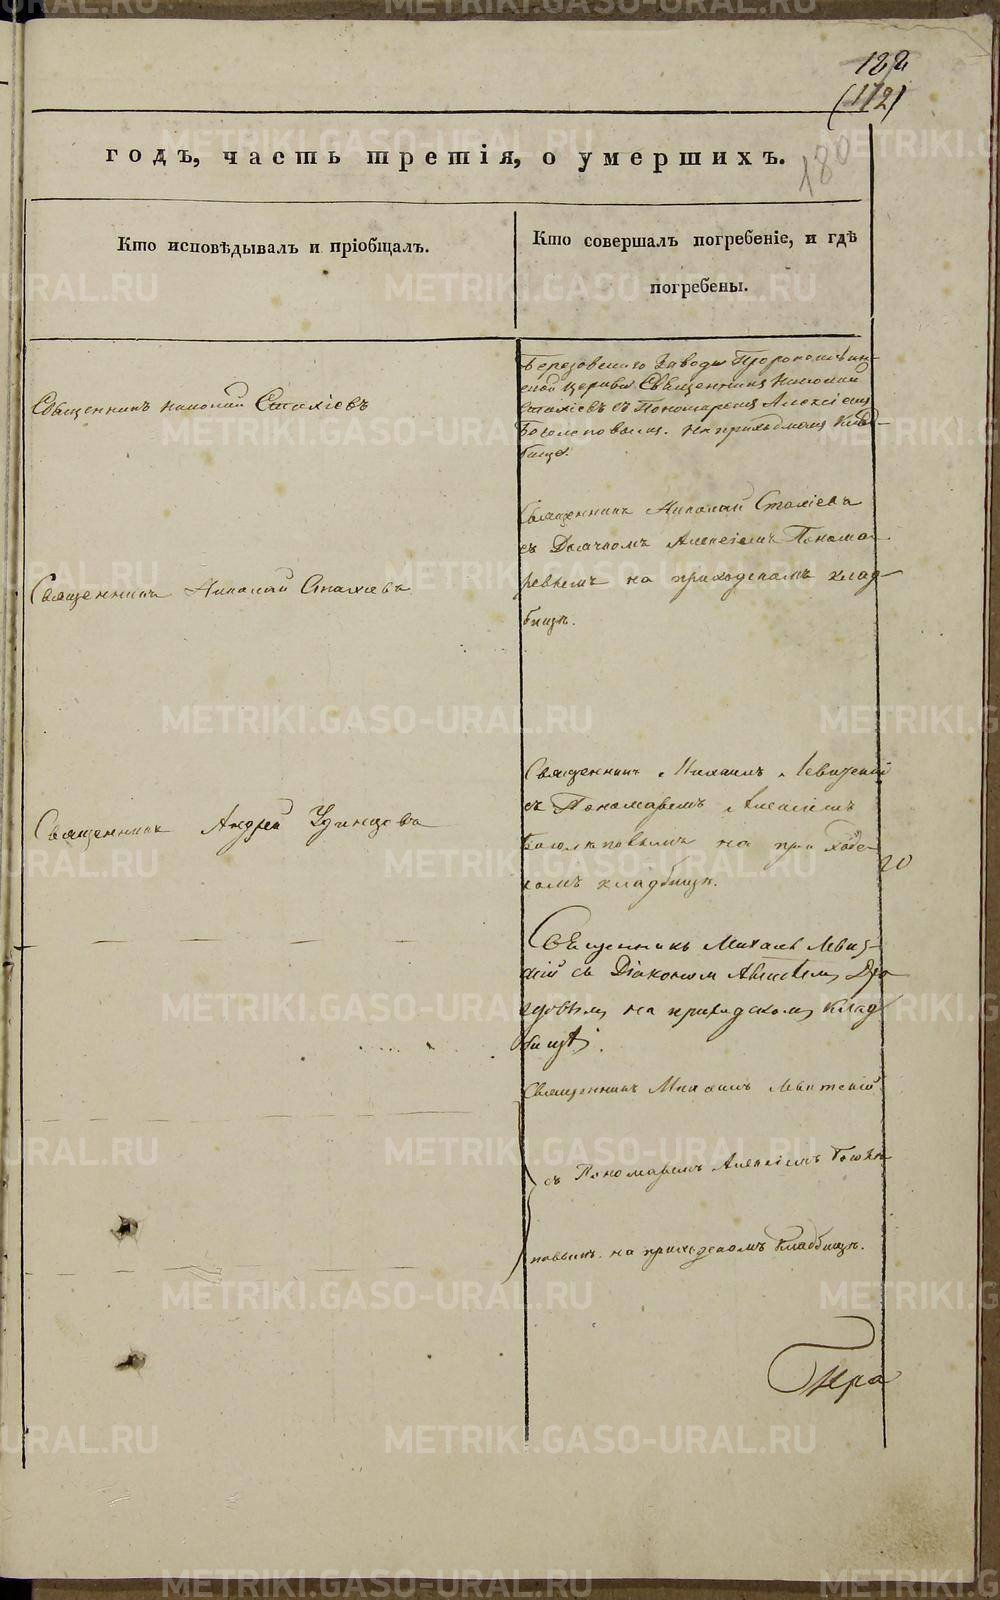 122
(112)
180
годъ, часть третія, о умершихъ.
Кто исповѣдывалъ и пріобщалъ.
Кто совершалъ погребеніе, и гдѣ
погребены.
Священникъ Николай Стахіевъ
Березовскаго Завода Пророкоильин-
ской церкви Священникъ Николай
Стахіевъ съ Пономаремъ Алексіемъ
Боголеповымъ. На приходскомъ клад-
бище.
Священникъ Николай Стахіевъ
Священникъ Николай Стахіевъ
съ Дьячкомъ Алексіемъ Понома-
ревымъ на приходскомъ клад-
бищѣ.
Священникъ Андрей Удинцевъ
Священникъ Михаилъ Левицкій
съ Пономаремъ Алексіемъ
Боголеповымъ на приходс-
комъ кладбищѣ.
20
Священникъ Михаилъ Левиц-
кій съ Діакономъ
на приходскомъ Клад
бищѣ.
Священникъ Михаилъ Левитскій
съ Пономаремъ Алексіемъ Боголе-
повымъ на приходскомъ кладбищѣ.
METRIKI.GASO-URAL.RU